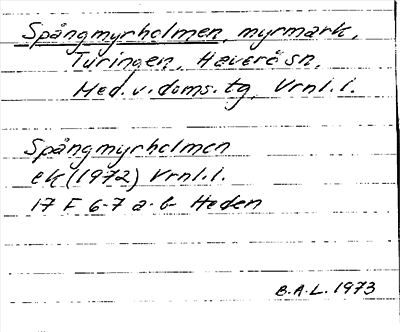 Spångmyrholmen, myrmark,
Turingen, Haverö sn,
Med.v.doms.tg, Vrnl.l.
Spångmyrholmen
ek (1972) Vrnl.l.
17 F 6-7 a-b Heden
B.A.L. 1973